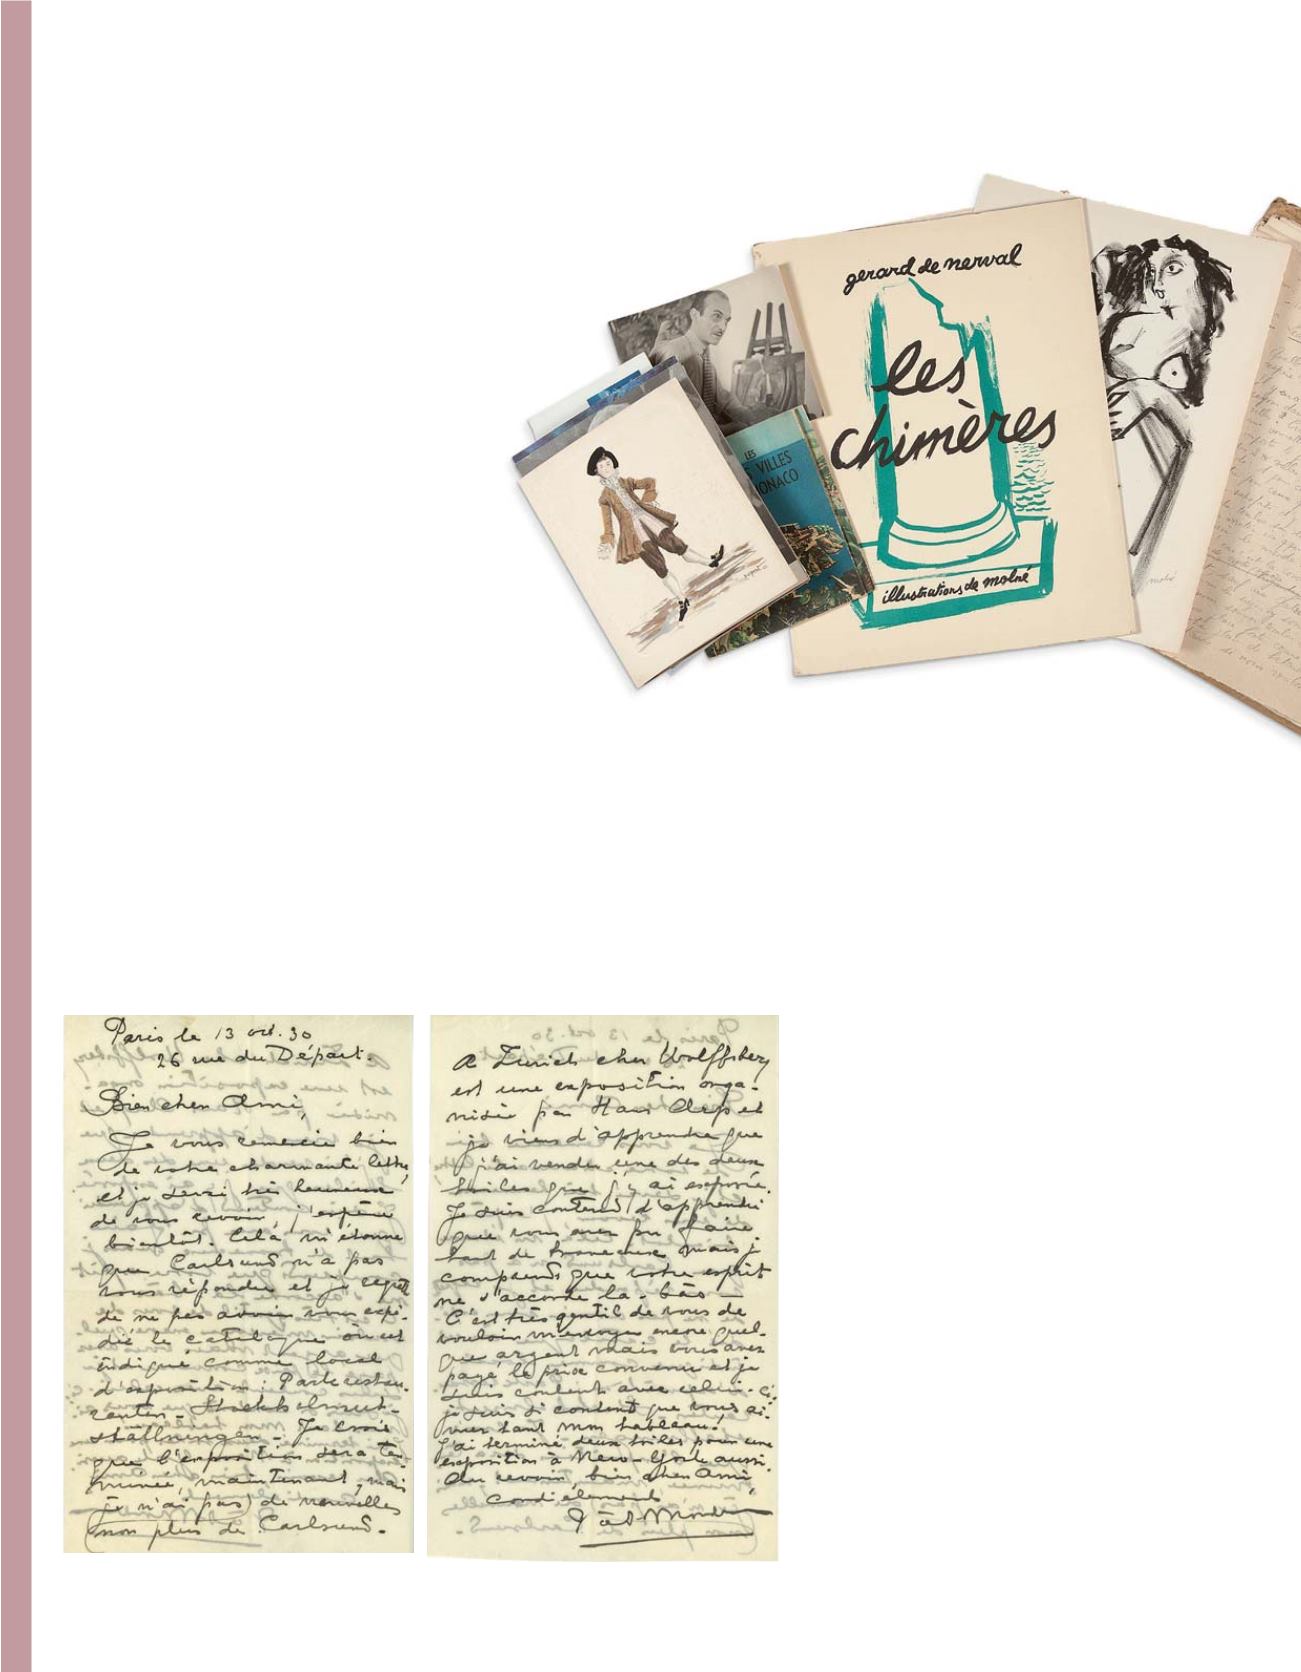 gerard de nerval
les
chimères
illustrations de molné
LES
S VILLES
ONACO
molné
Paris le 13 oct. 30
26 rue du Départ.
Bien cher Ami,
Je vous remercie bien
de votre charmante lettre
et je serai très heureuse
de vous revoir, j'espère
bientôt. Cela m'étonne
que Carlsund n'a pas
vous répondu et je regrette
de ne pas avoir vous expé-
dié le catalogue où est
indiqué comme local
d'exposition: Parkrestau-
ranten - Stockholmsut-
ställningen - Je crois
que l'exposition sera ter-
minée, maintenant, mais
je n'ai pas de nouvelles
non plus de Carlsund.
A Zurich chez Wolffsberg
est une exposition orga-
nisée par Hans Arp et
je viens d'apprendre que
j'ai vendu une des deux
toiles que j'y ai exposée.
Je suis content d'apprendre
que vous avez pu faire
tant de travaux mais je
comprends que votre esprit
ne s'accorde la-bas —
C'est très gentil de vous de
vouloir m'envoyer encore quel-
que argent mais vous avez
payé le prix convenu et je
suis content avec celui-ci.
je suis si content que vous ai-
mez tant mon tableau!
J'ai terminé deux toiles pour une
exposition à New-York aussi.
Au revoir bien cher Ami,
cordialement